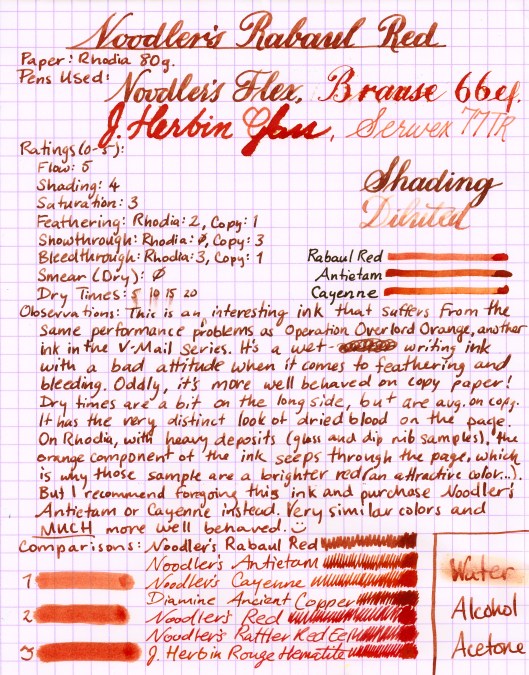 Noodler's Rabaul Red
Paper: Rhodia 80g.
Pens Used:
Noodler's Flex, Brause 66ef,
J. Herbin Glass, Serwex 77TR
Ratings (0-5):
Flow: 5
Shading: 4
Saturation: 3
Feathering: Rhodia: 2, Copy: 1
Showthrough: Rhodia: 0, Copy: 3
Bleedthrough: Rhodia: 3, Copy: 1
Smear (Dry): 0
Dry Times: 5 10 15 20
Shading
Diluted
Rabaul Red
Antietam
Cayenne
Observations: This is an interesting ink that suffers from the
same performance problems as Operation Overlord Orange, another
ink in the V-Mail Series. It's a wet- writing ink
with a bad attitude when it comes to feathering and
bleeding. Oddly, it's more well behaved on copy paper!
Dry times are a bit on the long side, but are avg. on copy.
It has the very distinct look of dried blood on the page.
On Rhodia, with heavy deposits (glass and dip nib samples), the
orange component of the ink seeps through the page, which
is why those sample are a brighter red (an attractive color...).
But I recommend forgoing this ink and purchase Noodler's
Antietam or Cayenne instead. Very similar colors and
MUCH more well behaved. :)
Comparisons: Noodler's Rabaul Red
Noodler's Antietam
1 Noodler's Cayenne
Diamine Ancient Copper
2 Noodler's Red
Noodler's Rattler Red Eel
3 J. Herbin Rouge Hematite
Water
Alcohol
Acetone